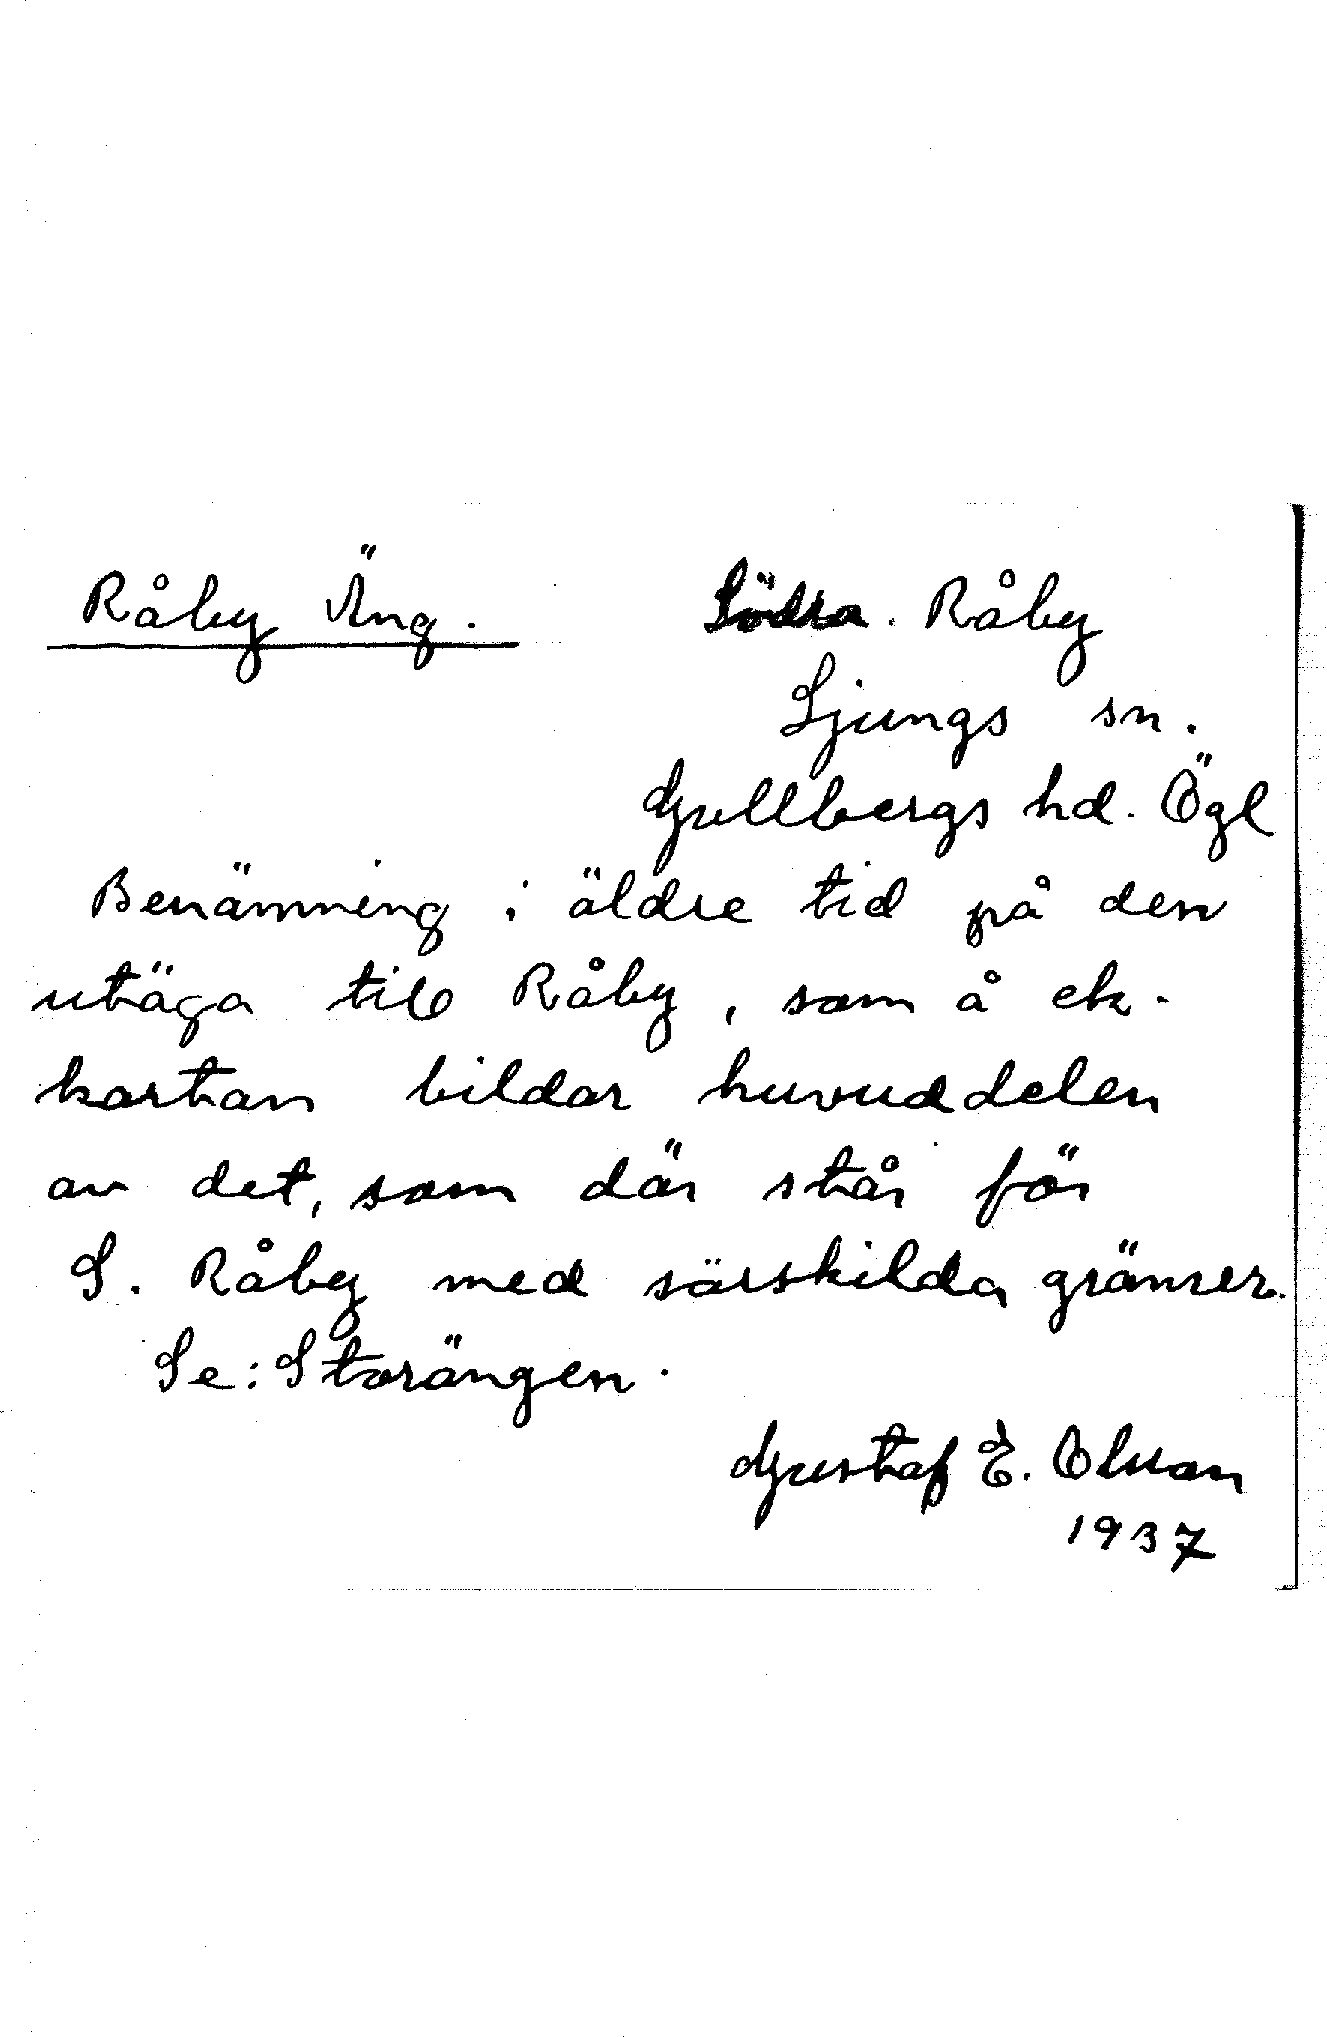 Råby Äng. Södra. Råby
Ljungs sn.
Gullbergs hd. Ögl
Benämning i äldre tid på den
utäga till Råby, som å ek.
kartan bildar huvuddelen
av det, som där står för
S. Råby med särskilda gränser.
Se: Storängen.
Gustaf E. Olsson
1937